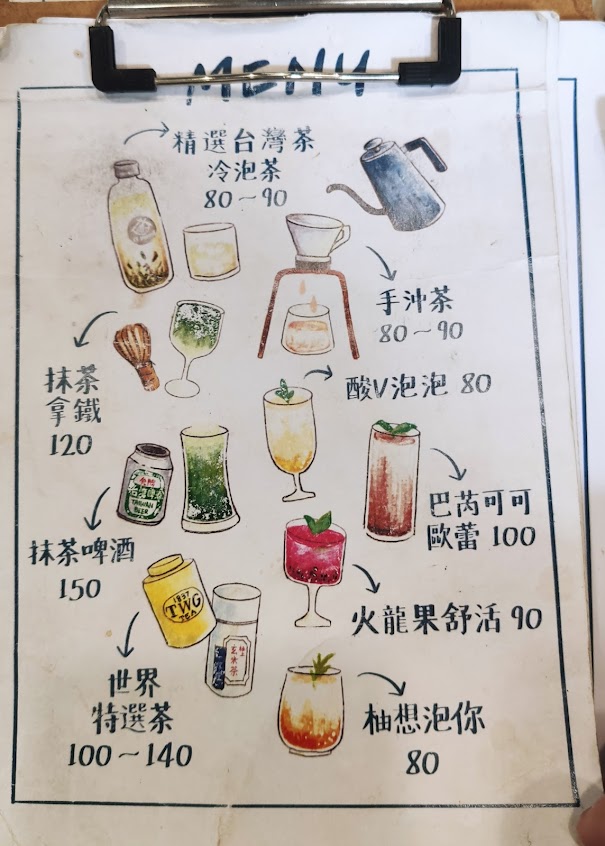 MENU
精選台灣茶
冷泡茶
80～90
手沖茶
80～90
抹茶
拿鐵
120
酸V泡泡 80
TAIWAN
BEER
抹茶啤酒
150
巴芮可可
歐蕾 100
火龍果舒活 90
1837
TWG
TEA
玄米茶
世界
特選茶
100～140
柚想泡你
80